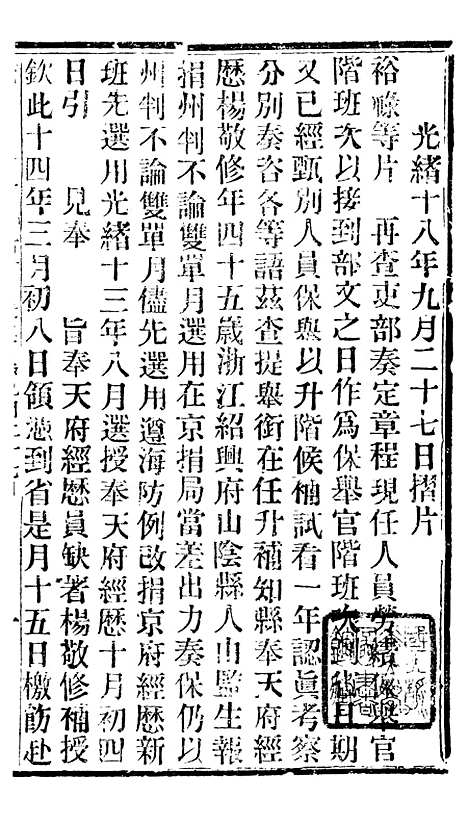 光緒十八年九月二十七日摺片
裕祿等片　再查吏部奏定章程現任人員勞績保舉官
階班次以接到部文之日作爲保舉官階班次到省日期
又已經甄別人員保舉以升階候補試看一年認眞考察
分別奏咨各等語茲查提舉銜在任升補知縣奉天府經
歷楊敬修年四十五歲浙江紹興府山陰縣人由監生報
捐州判不論雙單月選用在京捐局當差出力奏保仍以
州判不論雙單月儘先選用遵海防例改捐京府經歷新
班先選用光緒十三年八月選授奉天府經歷十月初四
日引　見奉　旨奉天府經歷員缺著楊敬修補授
欽此十四年三月初八日領憑到省是月十五日檄飭赴